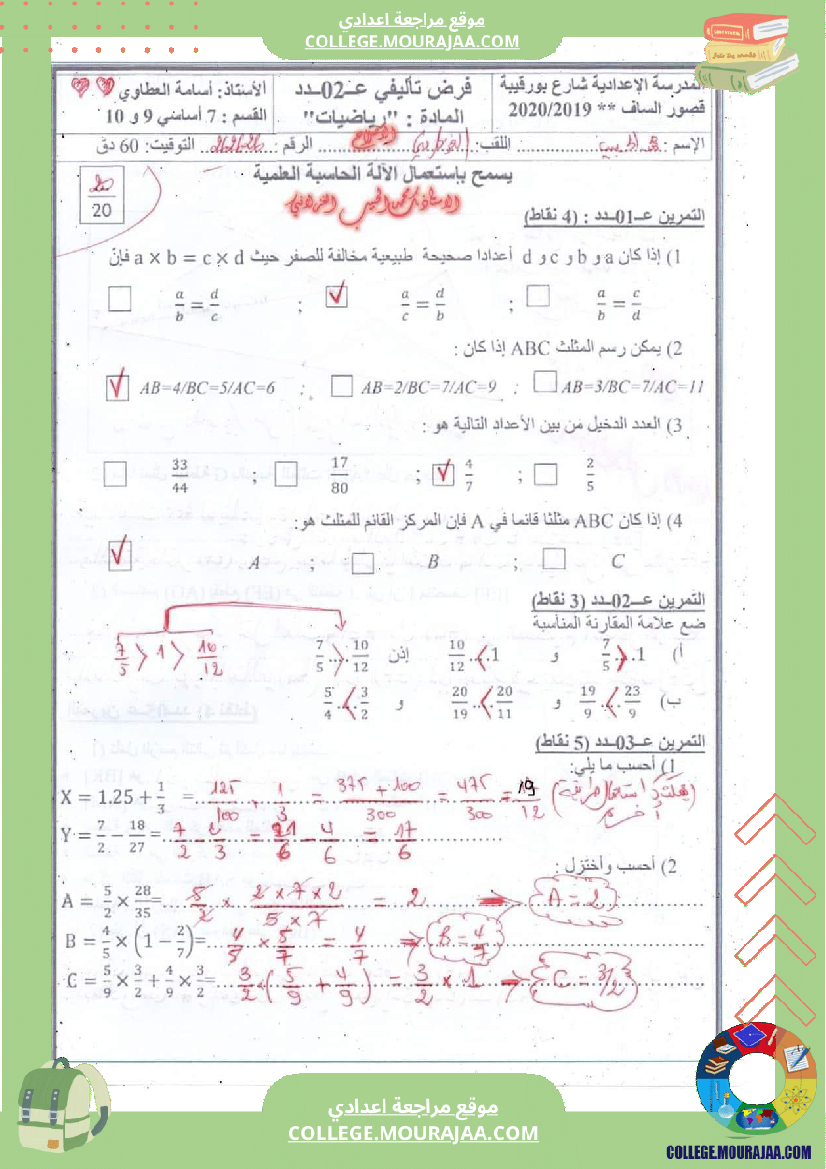 موقع مراجعة اعدادي
COLLEGE.MOURAJAA.COM
المدرسة الإعدادية شارع بورقيبة
قصور الساف ** 2020/2019
فرض تأليفي عـ02ـدد
المادة : "رياضيات"
الأستاذ: أسامة العطاوي
القسم : 7 أساسي 9 و 10
الإسم : اللقب: الرقم : التوقيت: 60 دق
يسمح باستعمال الآلة الحاسبة العلمية
20
التمرين عـ01ـدد : (4 نقاط)
1) إذا كان a و b و c و d أعدادا صحيحة طبيعية مخالفة للصفر حيث a × b = c × d فإن
a/b = d/c ; ✓ a/c = d/b ; a/b = c/d
2) يمكن رسم المثلث ABC إذا كان :
✓ AB=4/BC=5/AC=6 ; AB=2/BC=7/AC=9 ; AB=3/BC=7/AC=11
3) العدد الدخيل من بين الأعداد التالية هو :
33/44 ; 17/80 ; ✓ 4/7 ; 2/5
4) إذا كان ABC مثلثا قائما في A فإن المركز القائم للمثلث هو:
✓ A ; B ; C
التمرين عـ02ـدد (3 نقاط)
ضع علامة المقارنة المناسبة
أ) 7/5 > 1 و 10/12 < 1 إذن 7/5 > 10/12
7/5 > 1 > 10/12
ب) 19/9 < 23/9 و 20/19 < 20/11 و 5/4 < 3/2
التمرين عـ03ـدد (5 نقاط)
1) أحسب ما يلي:
X = 1.25 + 1/3 = 125/100 + 1/3 = 375 + 100/300 = 475/300 = 19/12
Y = 7/2 − 18/27 = 7/2 − 2/3 = 21/6 − 4/6 = 17/6
2) أحسب وأختزل :
A = 5/2 × 28/35 = 5/2 × 2×7×2/5×7 = 2 A = 2
B = 4/5 × (1 − 2/7) = 4/5 × 5/7 = 4/7 B = 4/7
C = 5/9 × 3/2 + 4/9 × 3/2 = 3/2 × (5/9 + 4/9) = 3/2 × 1 C = 3/2
موقع مراجعة اعدادي
COLLEGE.MOURAJAA.COM
COLLEGE.MOURAJAA.COM